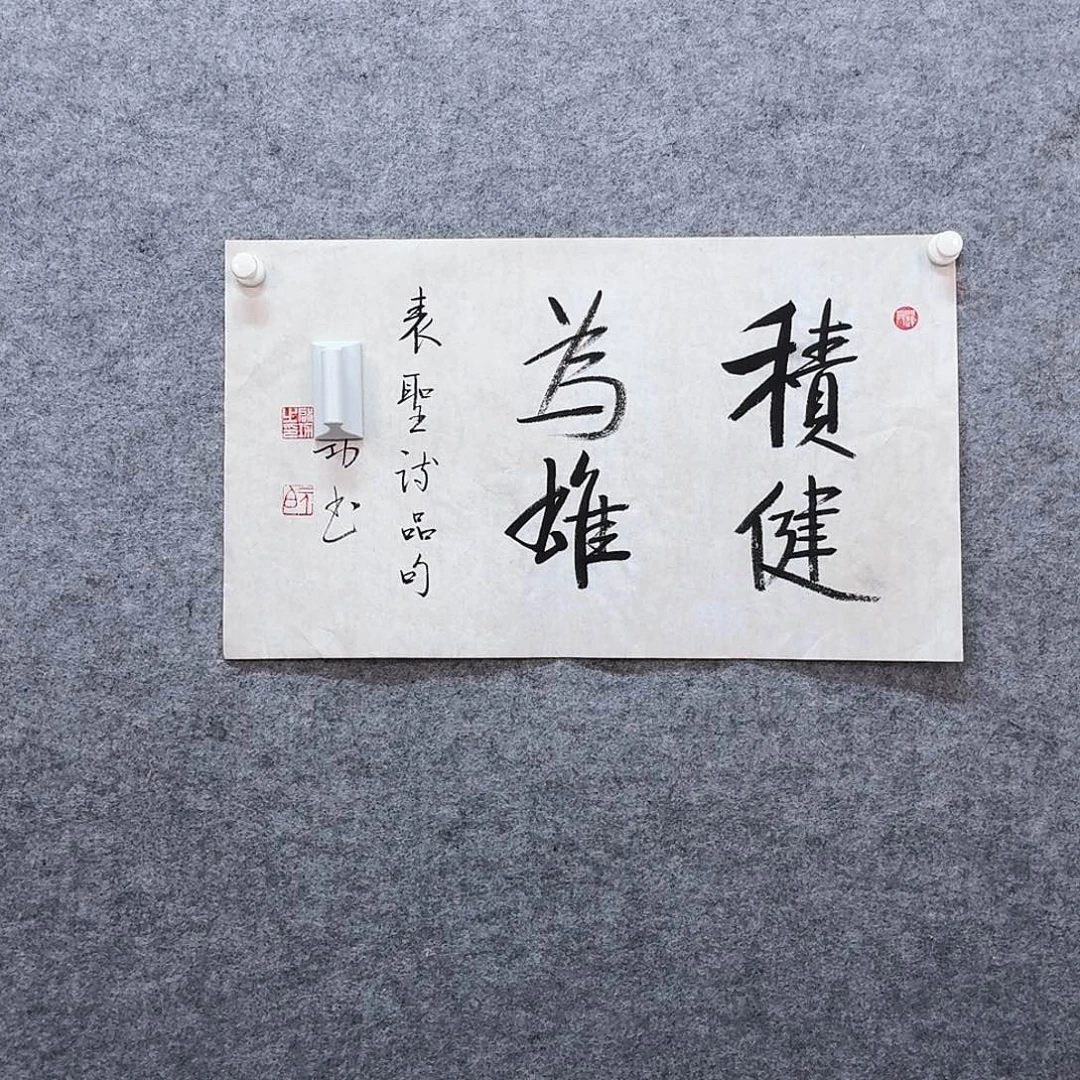 積健
為雄
表聖詩品句
功书